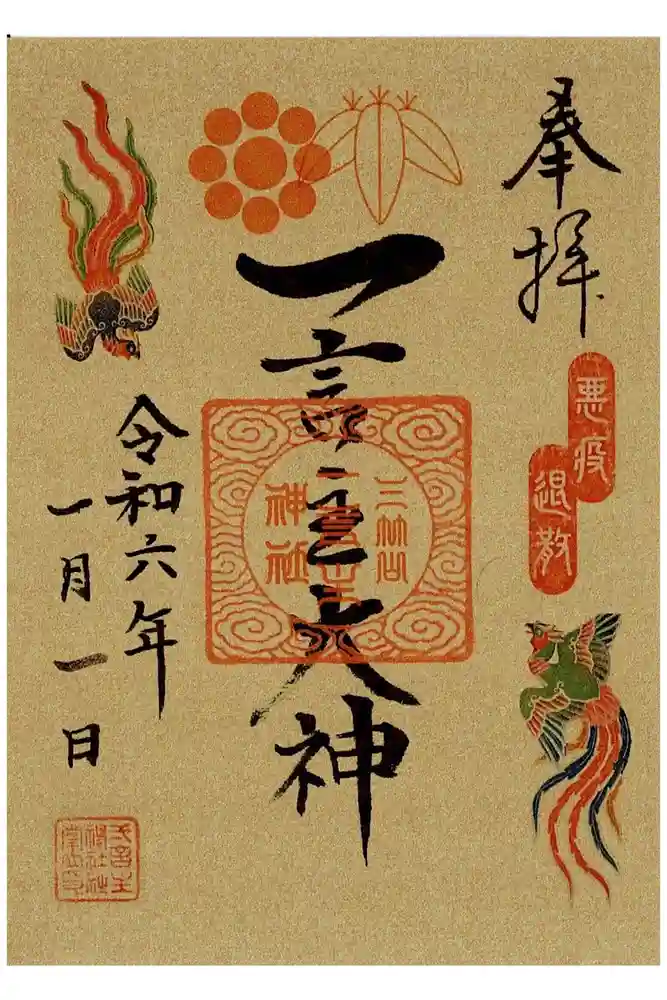 奉拝
悪疫
退散
一言主大神
三竹山
一言主
神社
令和六年
一月一日